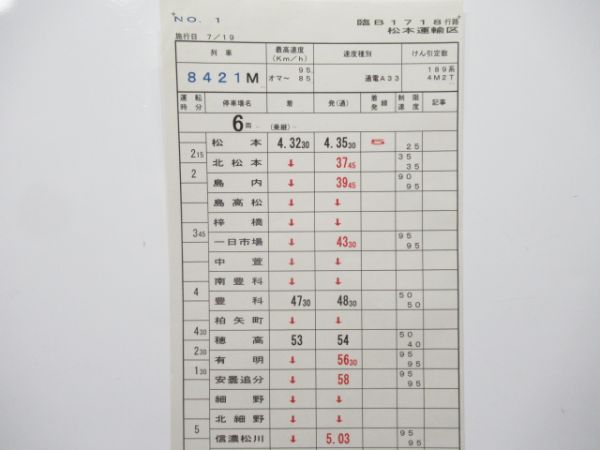 NO. 1 臨B1718行路
松本運輸区
施行日 7/19
列車 最高速度(Km/h) 速度種別 けん引定数
8421M 95 オマ～ 85 通電A33 189系 4M2T
運転時分 停車場名 着 発(通) 着発線 制限速度 記事
6両 (乗継)
松本 4.3230 4.3530 5 25
215
北松本 ↓ 3745 35 35
2
島内 ↓ 3945 90 95
島高松 ↓ ↓
梓橋 ↓ ↓
345
一日市場 ↓ 4330 95 95
中萱 ↓ ↓
南豊科 ↓ ↓
4
豊科 4730 4830 50 50
柏矢町 ↓ ↓
430
穂高 53 54 50 40
230
有明 ↓ 5630 95 95
130
安曇追分 ↓ 58 95 95
細野 ↓ ↓
北細野 ↓ ↓
5
信濃松川 ↓ 5.03 95 95